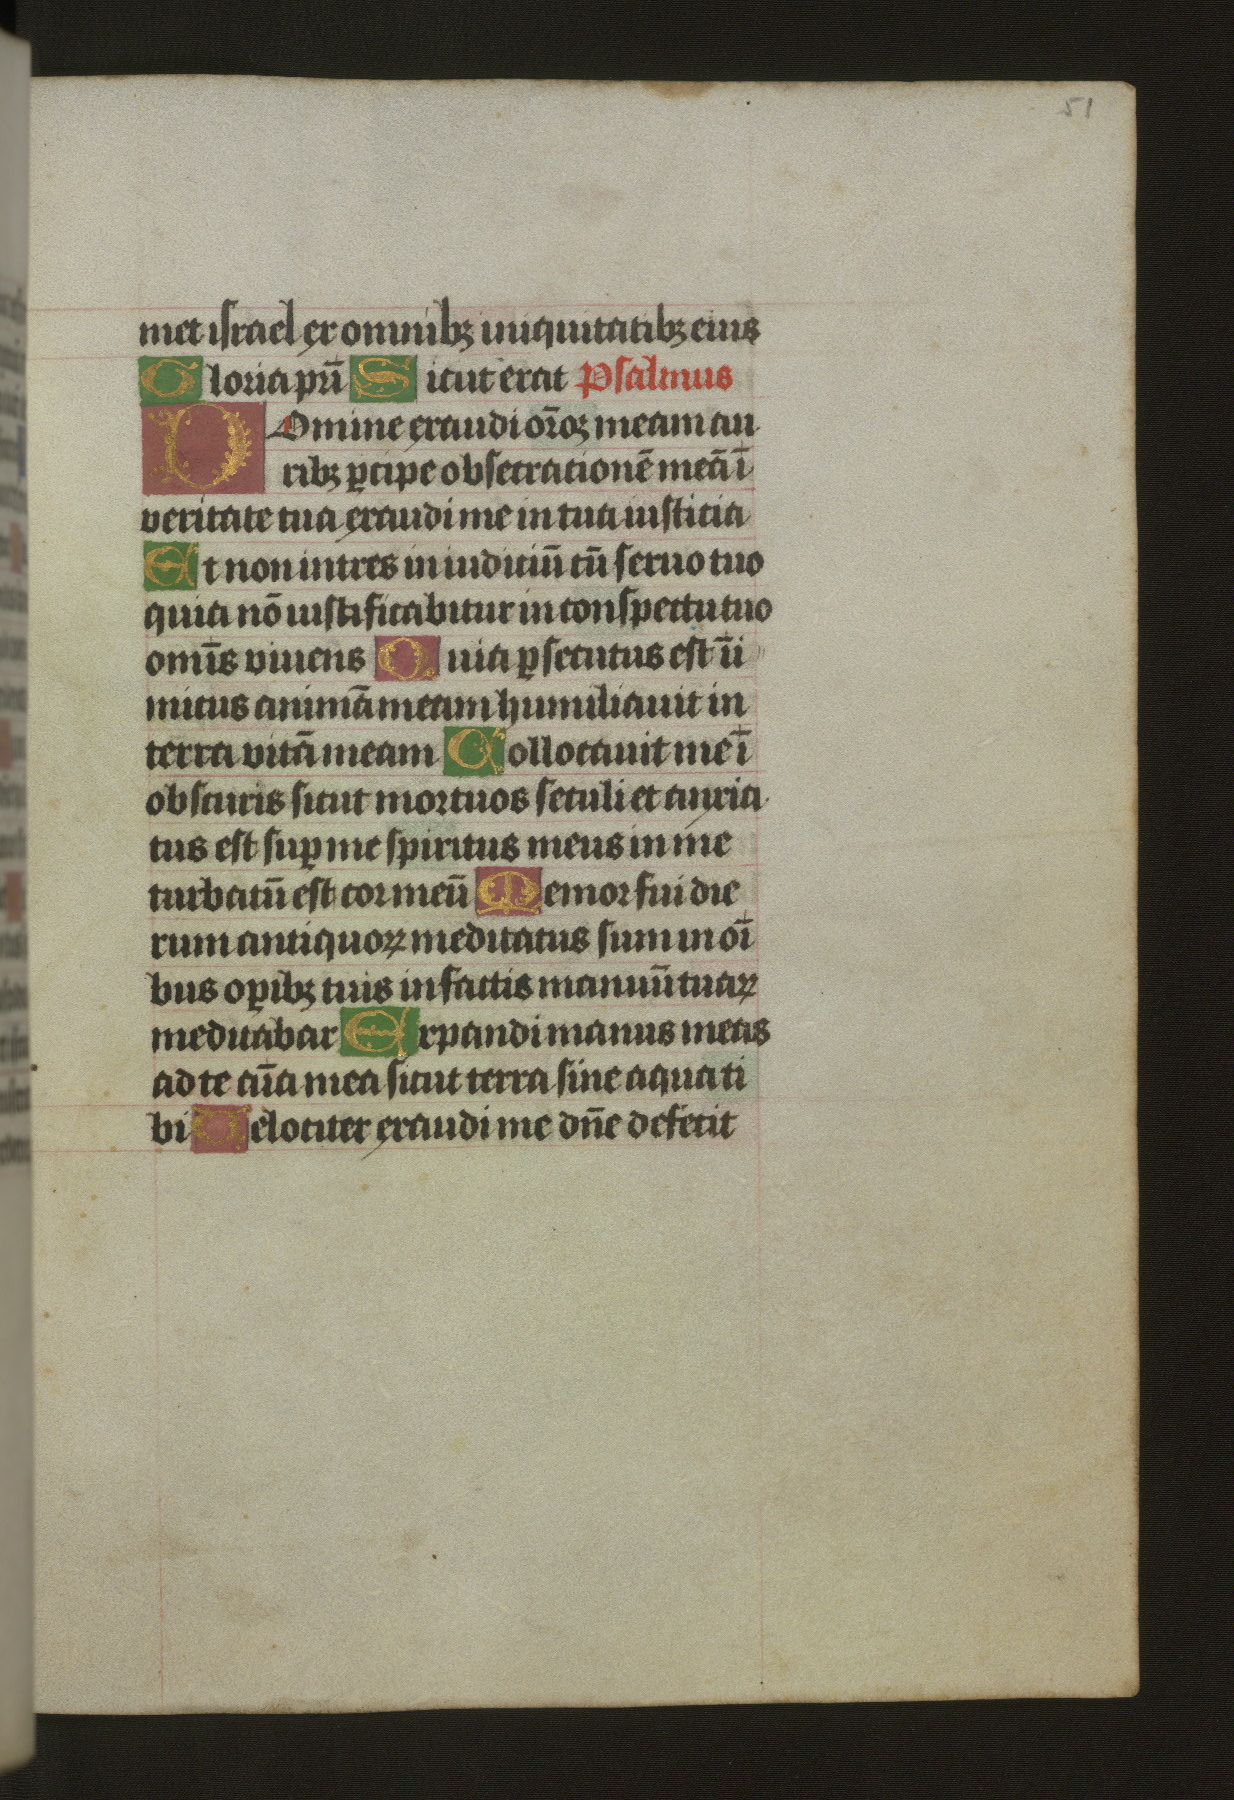 51
met israel ex omnibꝫ iniquitatibꝫ eius
Gloria pr̄i Sicut erat Psalmus
Domine exaudi or̄oꝫ meam au
ribꝫ ꝑcipe obsecrationē meā ī
veritate tua exaudi me in tua iusticia
Et non intres in iudiciū cū seruo tuo
quia nō iustificabitur in conspectu tuo
omīs viuens Quia ꝑsecutus est īi
micus animā meam humiliauit in
terra vitā meam Collocauit me ī
obscuris sicut mortuos seculi et anxia
tus est suꝑ me spiritus meus in me
turbatū est cor meū Memor fui die
rum antiquoꝝ meditatus sum in oī
bus oꝑibꝫ tuis in factis manuū tuaꝝ
meditabar Expandi manus meas
ad te aīa mea sicut terra sine aqua ti
bi Velociter exaudi me dn̄e defecit